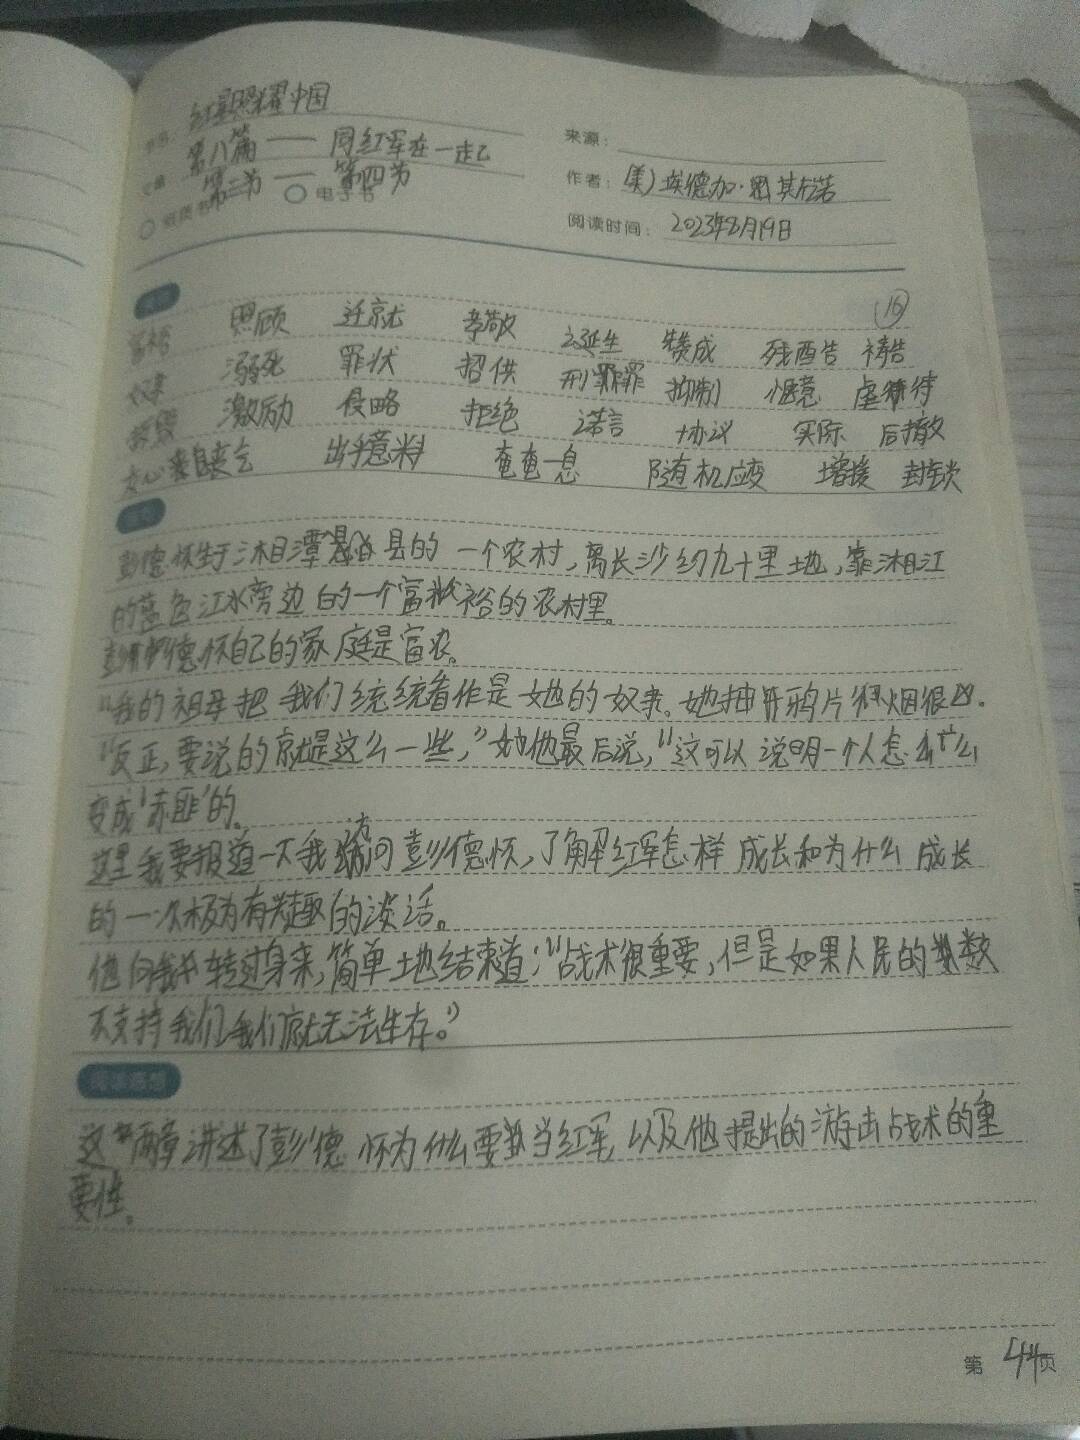 红星照耀中国
第八篇——同红军在一起
来源：
第三节——第四节
作者：（美）埃德加·斯诺
电子书
阅读时间：2023年8月19日
16
富裕 照顾 迁就 孝敬 诞生 赞成 残酷 祷告
奴隶 溺死 罪状 招供 刑罪 抑制 惬意 虐待
摧毁 激励 侵略 拒绝 诺言 协议 实际 后撤
出乎意料 奄奄一息 随机应变 增援 封锁
彭德怀生于湘潭县的一个农村，离长沙约九十里地，靠湘江
的蓝色江水旁边的一个富裕的农村里。
彭德怀自己的家庭是富农。
“我的祖母把我们统统看作是她的奴隶。她抽鸦片烟很凶。
“反正，要说的就是这么一些，”他最后说，“这可以说明一个人怎么
变成‘赤匪’的。
这里我要报道一下我访问彭德怀，了解红军怎样成长和为什么成长
的一次极为有兴趣的谈话。
他向我转过身来，简单地结束道：“战术很重要，但是如果人民的数
不支持我们，我们就无法生存。”
阅读感悟
这两章讲述了彭德怀为什么要当红军，以及他提出的游击战术的重
要性。
第44页